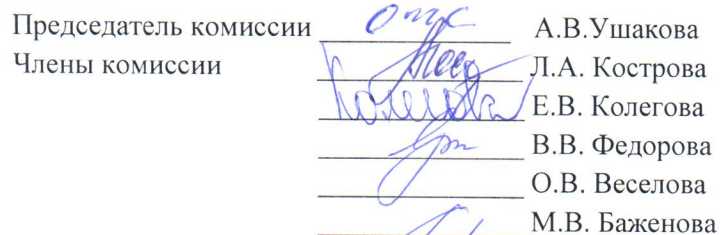 Председатель комиссии А.В.Ушакова
Члены комиссии Л.А. Кострова
Е.В. Колегова
В.В. Федорова
О.В. Веселова
М.В. Баженова